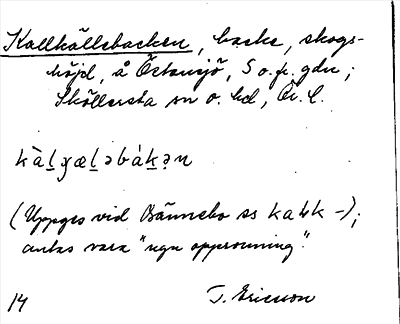 Kallkällebacken, backe, skogs-
höjd, å Östansjö, S o. fr. gdn;
Sköllersta sn o. hd, Ör. l.
kàl̠ɣæl̠əbák̠ən
(Uppges vid Bännebo ss kaƚk –);
antas vara "ngn apprevning".
14 T. Ericsson